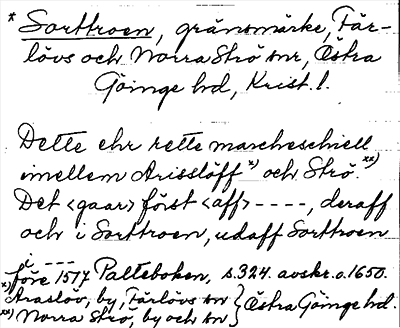 * Sorttroen, gränsmärke, Fär-
lövs och Norra Strö snr, Östra
Göinge hd, Krist. l.
Dette ehr rette marcheschiell
imellem Arisslöff x) och Strö. xx)
Det <gaar> först <aff> ----, deraff
och i Sorttroen, udaff Sorttroen
i ---
före 1517 Palteboken, s. 324. avskr. o. 1650.
x) Araslöv, by, Färlövs sn } Östra Göinge hd.
xx) Norra Strö, by och sn